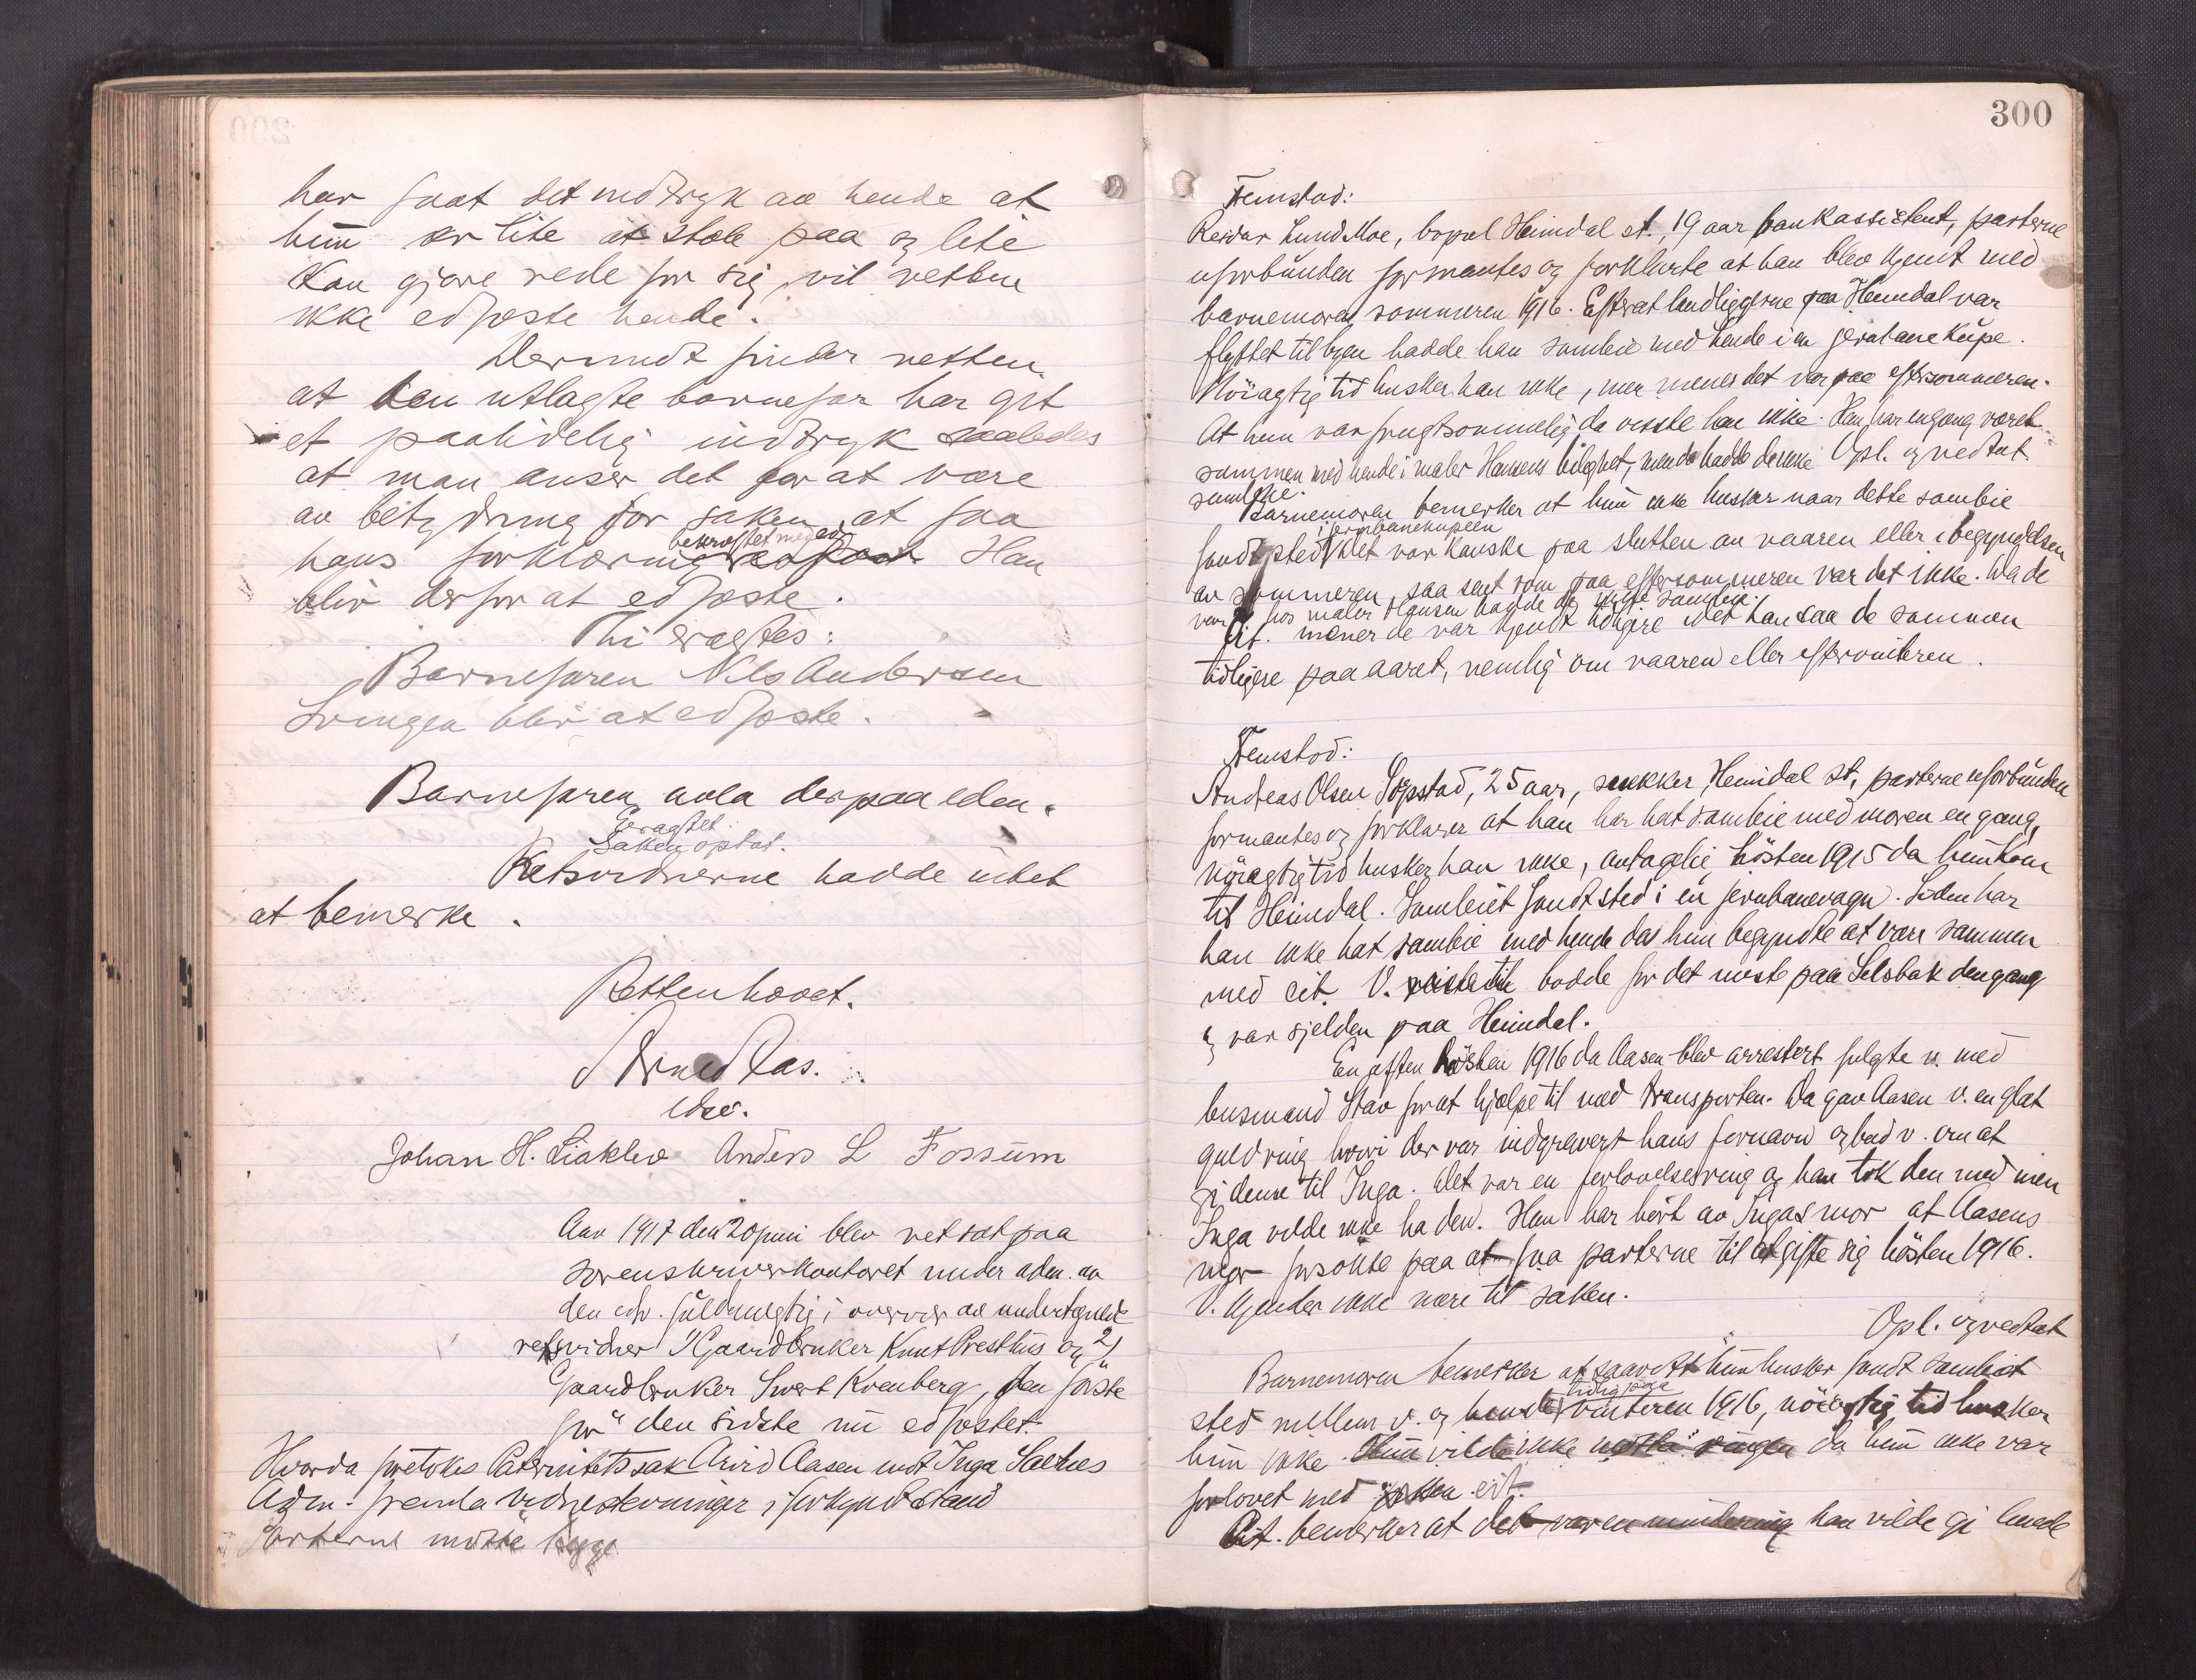 har faat det indtryk av hende at
hun er lite at stole paa og lite
kan gjøre rede for sig, vil retten
ikke edfæste hende.
Derimot finder retten
at den utlagte barnefar har git
et paalidelig indtryk saaledes
at man anser det for at være
av betydning for saken at faa
bekræftet med ed
hans forklaring Han
blir derfor at edfæste.
Thi eragtes:
Barnefaren Nils Andersen
Svingen blir at edfæste.
Barnefaren avla derpaa eden.
Eragtet:
Saken optat.
Retsvidnerne hadde intet
at bemerke.
Retten hævet.
Arne Aas.
edsv.
Johan H. Liaklev Anders L Fossum
Aar 1917 den 20 juni blev ret sat paa
sorenskriverkontoret under adm. av
den edsv. fuldmegtig i overvær av undertegnede
retsvidner 1) Gaardbruker Knut Presthus og 2)
Gaardbruker Sivert Kvenberg, den første
før den sidste nu edfæstet.
Hvorda foretokes Paternitetssak Arvid Aasen mot Inga Sæthes
Adm. fremla vidnestevninger i forkyndt stand
Parterne møtte begge
300
Fremstod:
Reidar Lund Moe, bopæl Heimdal st., 19 aar bankassistent, parterne
uforbunden formantes og forklarte at han blev kjendt med
barnemoren sommeren 1916. Efterat landliggerne paa Heimdal var
flyttet til byen hadde han samleie med hende i en jernbanekupe.
Nøiagtig tid husker han ikke, men mener det var paa eftersommeren.
At hun var frugtsommelig da visste han ikke. Han har engang været
sammen med hende i maler Hansens leilighet, men da hadde de ikke Opl. og vedtat.
samleie.
Barnemoren bemerker at hun ikke husker naar dette samleie
i jernbanekupeen
fandt sted, det var kanske paa slutten av vaaren eller i begyndelsen
av sommeren, saa sent som paa eftersommeren var det ikke. Da de
var hos maler Hansen hadde de ikke samleie.
Cit. mener de var kjendt tidligere idet han saa de sammen
tidligere paa aaret, nemlig om vaaren eller eftervinteren.
Fremstod:
Andreas Olsen Sørstad, 25 aar, snekker, Heimdal st, parterne uforbunden
formantes og forklarer at han har hat samleie med moren en gang,
nøiagtig tid husker han ikke, antagelig høsten 1915 da hun kom
til Heimdal. Samleiet fandt sted i en jernbanevagn. Siden har
han ikke hat samleie med hende da hun begyndte at være sammen
med cit. V. bodde for det meste paa Selsbak dengang
og var sjelden paa Heimdal.
En aften høsten 1916 da Aasen blev arrestert fulgte v. med
lensmand Stav for at hjælpe til med transporten. Da gav Aasen v. en glat
guldring hvori der var indgravert hans fornavn og bad v. om at
gi denne til Inga. Det var en forlovelsesring og han tok den med men
Inga vilde ikke ha den. Han har hørt av Ingas mor at Aasens
mor forsøkte paa at faa parterne til at gifte sig høsten 1916.
V. kjender ikke mere til saken.
Opl. og vedtat
Barnemoren bemerker at saavidt hun husker fandt samleiet
tidlig paa
sted mellem v. og hende vinteren 1916, nøiagtig tid husker
hun ikke. Hun vilde ikke motta ringen da hun ikke var
forlovet med cit.
Cit. bemerker at det var en han vilde gi hende